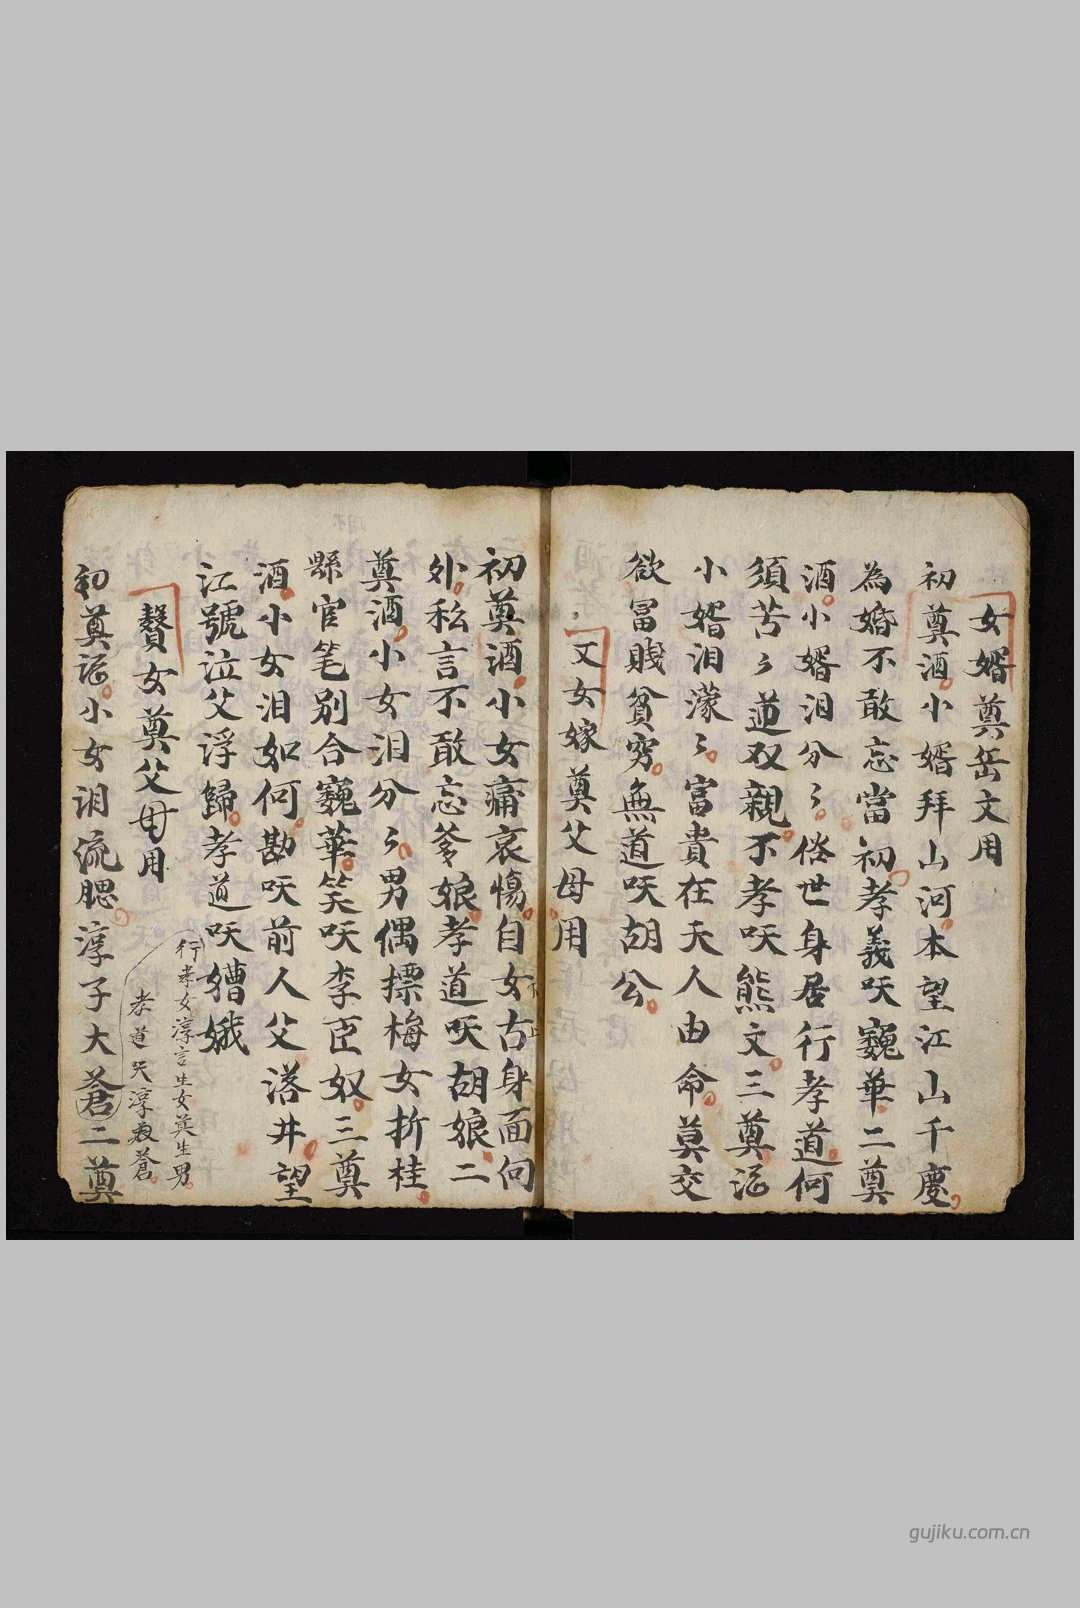 女婿奠岳文用
初奠酒小婿拜山河本望江山千慶
為婚不敢忘當初孝義㕭巍華二奠
酒小婿泪分〻俗世身居行孝道何
須苦〻道双親不孝㕭熊文三奠
小婿泪濛〻富貴在天人由命莫交
欲冨賤貧穷無道㕭胡公
又女嫁奠父母用
初奠酒小女痛哀傷自女古身面向
外私言不敢忘爹娘孝道㕭胡娘二
奠酒小女泪分〻男偶摽梅女折桂
縣官笔别合巍華笑㕭李臣奴三奠
酒小女泪如何勘㕭前人父落井望
江號泣父浮歸孝道㕭嫦娥
行孝女淳言生女莫生男
孝道㕭淳叔蒼
贅女奠父母用
初奠小女泪流腮淳子大蒼二奠
gujiku.com.cn